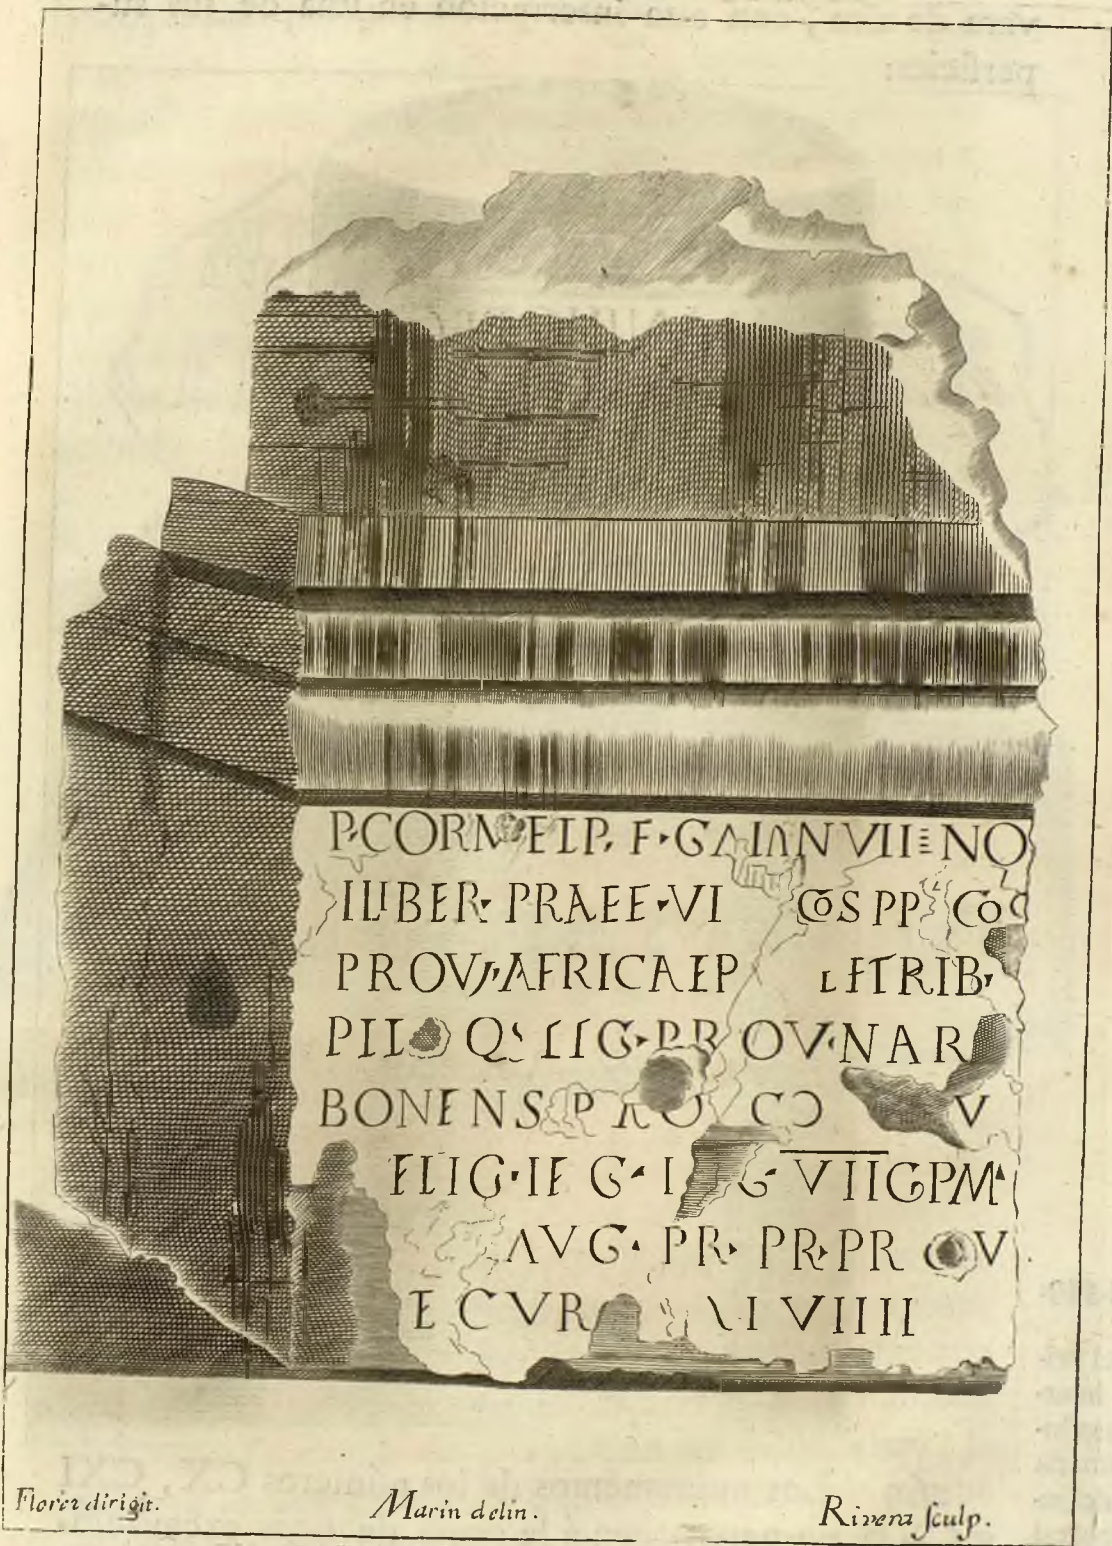 P. CORN EL P. F. GAIAN VII NO
ILIBER. PRAEE. VI COS PP CO
PROV. AFRICAE P LETRIB.
PIL O Q. LEG. PR OV. NAR
BONENS PRO CO V
FLIG. IE G. I G. VII GPM.
AVG. PR. PR. PR OV
E CVR VI VIIII
Florez dirigit.
Marin delin.
Rivera sculp.